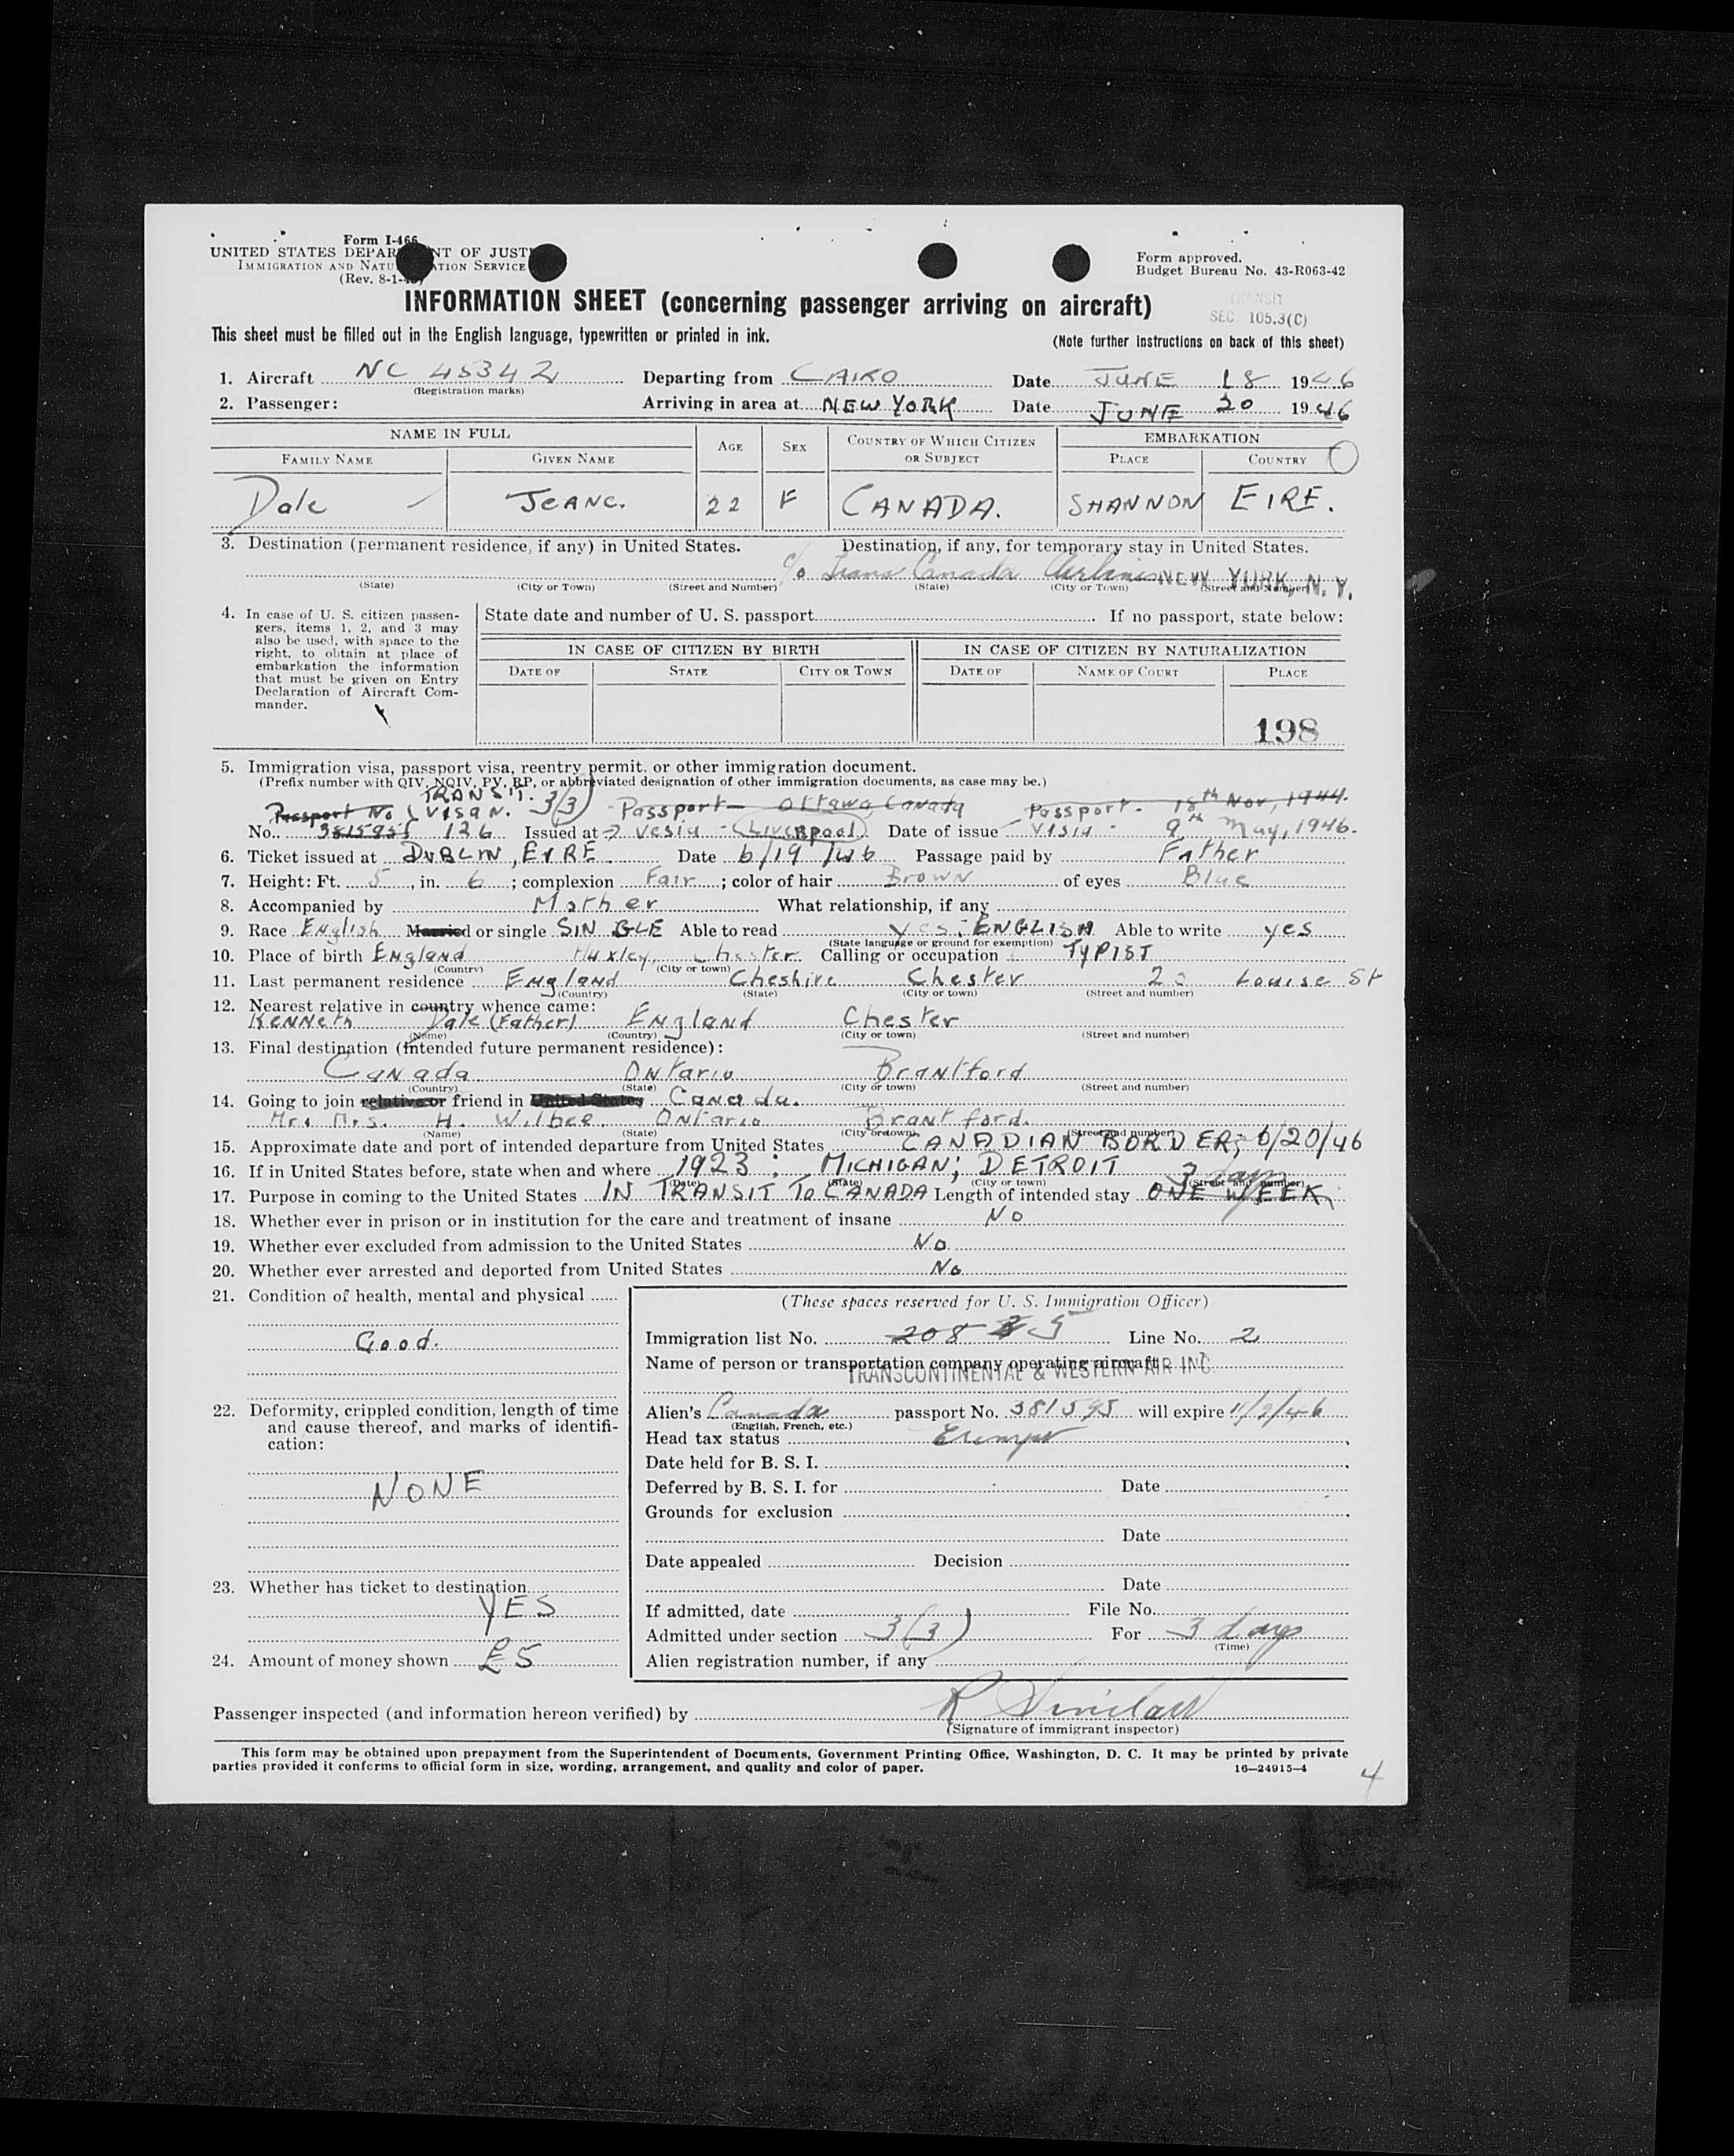 Form I-466
UNITED STATES DEPARTMENT OF JUSTICE
IMMIGRATION AND NATURALIZATION SERVICE
(Rev. 8-1-
Form approved.
Budget Bureau No. 43-R063-42
INFORMATION SHEET (concerning passenger arriving on aircraft)
TRANSIT
SEC. 105.3(C)
This sheet must be filled out in the English language, typewritten or printed in ink.
(Note further instructions on back of this sheet)
1. Aircraft NC 45342 Departing from CAIRO Date JUNE 18 1946
(Registration marks)
2. Passenger: Arriving in area at NEW YORK Date JUNE 20 1946
NAME IN FULL AGE SEX COUNTRY OF WHICH CITIZEN OR SUBJECT EMBARKATION
FAMILY NAME GIVEN NAME PLACE COUNTRY
Dale JEANC. 22 F CANADA. SHANNON EIRE.
3. Destination (permanent residence, if any) in United States. Destination, if any, for temporary stay in United States.
c/o Trans Canada Airlines NEW YORK, N. Y.
(State) (City or Town) (Street and Number) (State) (City or Town) (Street and Number)
4. In case of U. S. citizen passengers, items 1, 2, and 3 may also be used, with space to the right, to obtain at place of embarkation the information that must be given on Entry Declaration of Aircraft Commander.
State date and number of U. S. passport If no passport, state below:
IN CASE OF CITIZEN BY BIRTH IN CASE OF CITIZEN BY NATURALIZATION
DATE OF STATE CITY OR TOWN DATE OF NAME OF COURT PLACE
198
5. Immigration visa, passport visa, reentry permit, or other immigration document.
(Prefix number with QIV, NQIV, PV, RP, or abbreviated designation of other immigration documents, as case may be.)
TRANSIT 3(3)
Passport No Visa N. Passport - Ottawa, Canada Passport - 18th Nov, 1944.
No. 381595 126 Issued at Vesia - Liverpool Date of issue Visia - 9th May, 1946.
6. Ticket issued at DUBLIN, EIRE Date 6/19/46 Passage paid by Father
7. Height: Ft. 5, in. 6; complexion Fair; color of hair Brown of eyes Blue
8. Accompanied by Mother What relationship, if any
9. Race English Married or single SINGLE Able to read yes: ENGLISH Able to write yes
(State language or ground for exemption)
10. Place of birth England Huxley, Chester. Calling or occupation TYPIST
(Country) (City or town)
11. Last permanent residence England Cheshire Chester 22 Louise St
(Country) (State) (City or town) (Street and number)
12. Nearest relative in country whence came:
Kenneth Dale (Father) England Chester
(Name) (Country) (City or town) (Street and number)
13. Final destination (intended future permanent residence):
Canada Ontario Brantford
(Country) (State) (City or town) (Street and number)
14. Going to join relative or friend in United States Canada.
Mr. Mrs. H. Wilbee. Ontario Brantford.
(Name) (State) (City or town) (Street and number)
15. Approximate date and port of intended departure from United States CANADIAN BORDER; 6/20/46
16. If in United States before, state when and where 1923: MICHIGAN; DETROIT
(Date) (State) (City or town) (Street and number)
3 days
17. Purpose in coming to the United States IN TRANSIT TO CANADA Length of intended stay ONE WEEK
18. Whether ever in prison or in institution for the care and treatment of insane No
19. Whether ever excluded from admission to the United States No
20. Whether ever arrested and deported from United States No
21. Condition of health, mental and physical
Good.
22. Deformity, crippled condition, length of time and cause thereof, and marks of identification:
NONE
23. Whether has ticket to destination
YES
24. Amount of money shown £5
(These spaces reserved for U. S. Immigration Officer)
Immigration list No. 208 5 Line No. 2
Name of person or transportation company operating aircraft
TRANSCONTINENTAL & WESTERN AIR INC.
Alien's Canada passport No. 381595 will expire 11/2/46
(English, French, etc.)
Head tax status Exempt
Date held for B. S. I.
Deferred by B. S. I. for Date
Grounds for exclusion
Date
Date appealed Decision
Date
If admitted, date File No.
Admitted under section 3(3) For 3 days
(Time)
Alien registration number, if any
Passenger inspected (and information hereon verified) by R Sinclair
(Signature of immigrant inspector)
This form may be obtained upon prepayment from the Superintendent of Documents, Government Printing Office, Washington, D. C. It may be printed by private
parties provided it conforms to official form in size, wording, arrangement, and quality and color of paper.
16—24915-4
4